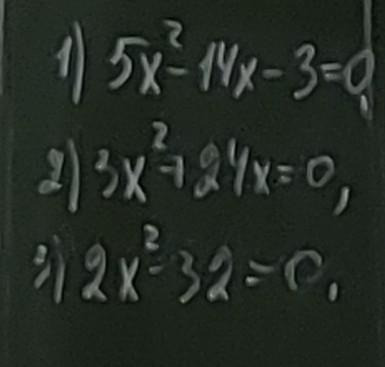 1) 5x²-14x-3=0,
2) 3x²+24x=0,
3) 2x²-32=0.